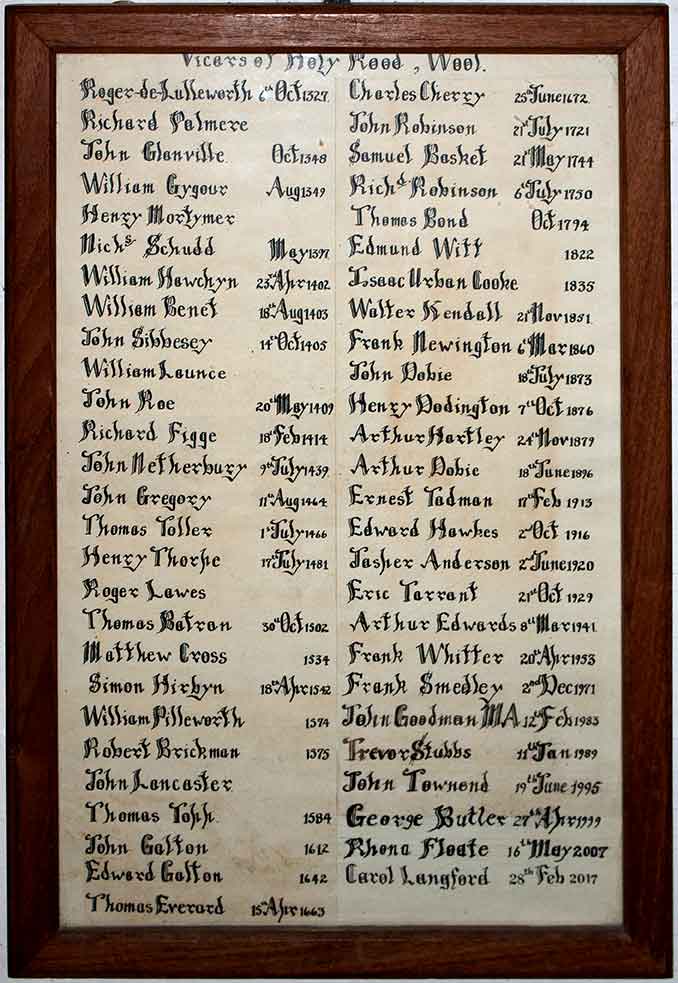 Vicars of Holy Rood, Wool.
Roger-de-Lulleworth 6th Oct 1327
Richard Palmere
John Glanville Oct 1348
William Gygour Aug 1349
Henry Mortymer
Nichs Schudd May 1397
William Hawchyn 23rd Apr 1402
William Benet 18th Aug 1403
John Sibbesey 14th Oct 1405
William Launce
John Roe 20th May 1409
Richard Figge 18th Feb 1414
John Netherbury 9th July 1439
John Gregory 11th Aug 1464
Thomas Toller 1st July 1466
Henry Thorpe 17th July 1481
Roger Lawes
Thomas Batran 30th Oct 1502
Matthew Cross 1534
Simon Hirbyn 18th Apr 1542
William Pilleworth 1574
Robert Brickman 1575
John Lancaster
Thomas Topp. 1584
John Galton 1612
Edward Galton 1642
Thomas Everard 15th Apr 1663
Charles Cherry 25th June 1672
John Robinson 21st July 1721
Samuel Basket 21st May 1744
Richd Robinson 6th July 1750
Thomas Bond Oct 1794
Edmund Witt 1822
Isaac Urban Cooke 1835
Walter Kendall 21st Nov 1851
Frank Newington 6th Mar 1860
John Dobie 18th July 1873
Henry Dodington 7th Oct 1876
Arthur Hartley 24th Nov 1879
Arthur Dobie 18th June 1896
Ernest Tadman 17th Feb 1913
Edward Hawkes 2nd Oct 1916
Jasper Anderson 2nd June 1920
Eric Tarrant 21st Oct 1929
Arthur Edwards 8th Mar 1941
Frank Whitter 20th Apr 1953
Frank Smedley 2nd Dec 1971
John Goodman MA 12th Feb 1983
Trevor Stubbs 11th Jan 1989
John Townend 19th June 1995
George Butler 27th Apr 1999
Rhona Floate 16th May 2007
Carol Langford 28th Feb 2017